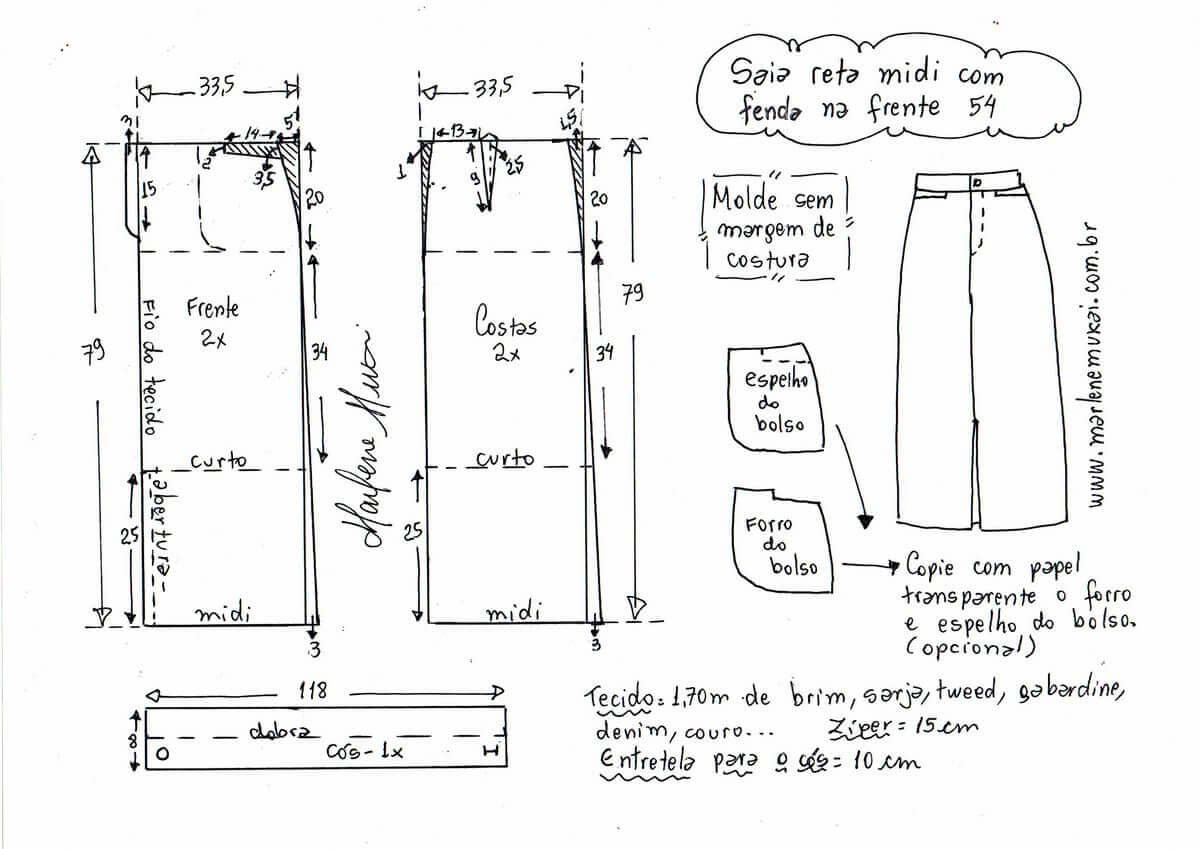 Saia reta midi com
fenda na frente 54
33,5
3
14
5
2
3,5
15
20
79
Frente
2x
34
Fio do tecido
curto
25
abertura
midi
3
Marlene Mukai
33,5
13
1,5
1
9
2,5
20
79
Costas
2x
34
curto
25
midi
3
Molde sem
margem de
costura
espelho
do
bolso
Forro
do
bolso
www.marlenemukai.com.br
Copie com papel
transparente o forro
e espelho do bolso.
(opcional)
118
8
dobra
cós-1x
Tecido= 1,70m de brim, sarja, tweed, gabardine,
denim, couro... Zíper= 15cm
Entretela para o cós= 10 cm